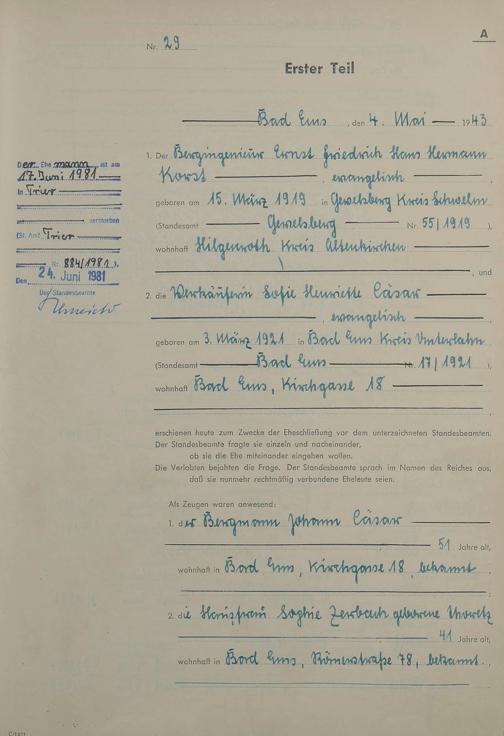 A
Nr. 29
Erster Teil
Bad Ems, den 4. Mai 1943
1. Der Bergingenieur Ernst Friedrich Hans Hermann
Korst, evangelisch
geboren am 15. März 1919 in Gevelsberg Kreis Schwelm
(Standesamt Gevelsberg Nr. 55/1919),
wohnhaft Hilgenroth Kreis Altenkirchen
, und
2. die Verkäuferin Sofie Henriette Cäsar
, evangelisch
geboren am 3. März 1921 in Bad Ems Kreis Unterlahn
(Standesamt Bad Ems Nr. 17/1921),
wohnhaft Bad Ems, Kirchgasse 18
erschienen heute zum Zwecke der Eheschließung vor dem unterzeichneten Standesbeamten.
Der Standesbeamte fragte sie einzeln und nacheinander,
ob sie die Ehe miteinander eingehen wollen.
Die Verlobten bejahten die Frage. Der Standesbeamte sprach im Namen des Reiches aus,
daß sie nunmehr rechtmäßig verbundene Eheleute seien.
Als Zeugen waren anwesend:
1. der Bergmann Johann Cäsar
51 Jahre alt,
wohnhaft in Bad Ems, Kirchgasse 18, bekannt
;
2. die Hausfrau Sophie Zerbach geborene
41 Jahre alt,
wohnhaft in Bad Ems, Römerstraße 78, bekannt.
Der Ehemann ist am
17. Juni 1981
in Trier
verstorben
(St. Amt Trier
Nr. 884/1981).
Den 24. Juni 1981
Der Standesbeamte